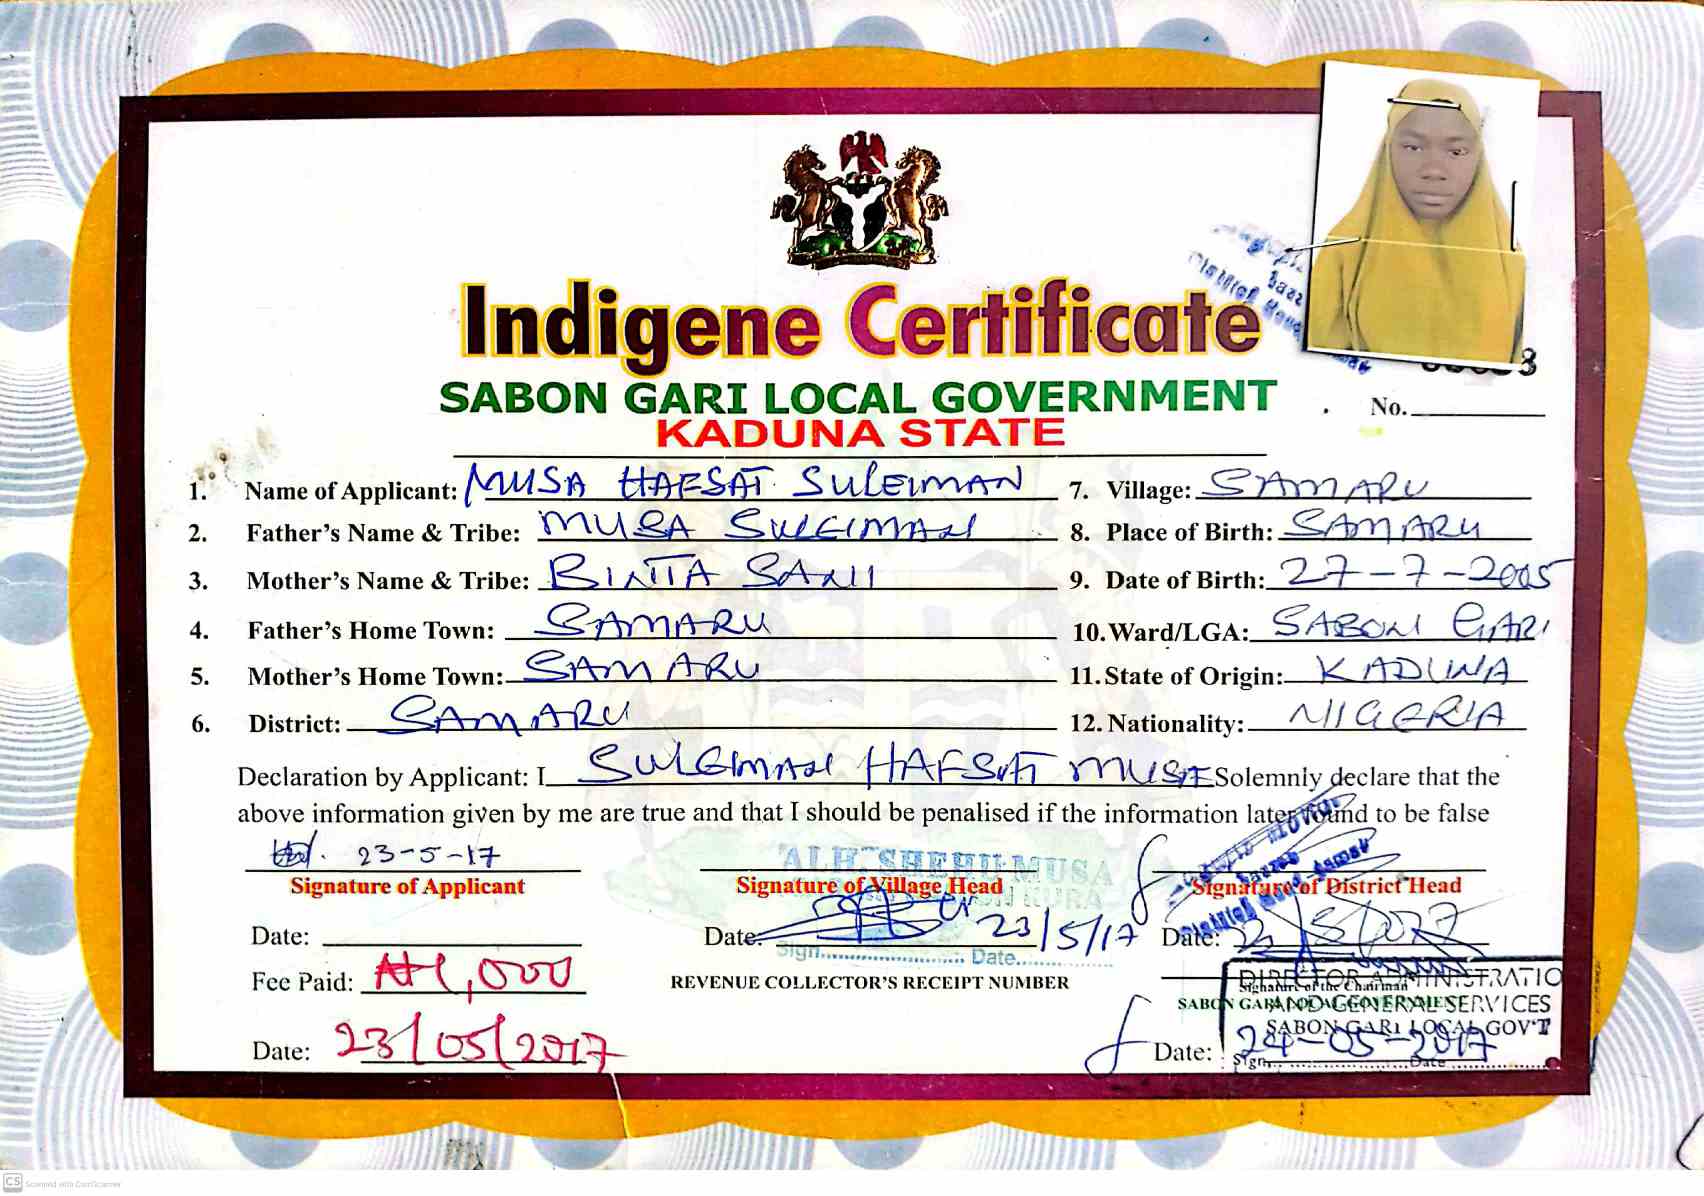 Indigene Certificate
SABON GARI LOCAL GOVERNMENT
KADUNA STATE
No.
1. Name of Applicant: MUSA HAFSAT SULEIMAN
7. Village: SAMARU
2. Father's Name & Tribe: MUSA SULEIMAN
8. Place of Birth: SAMARU
3. Mother's Name & Tribe: BINTA SANI
9. Date of Birth: 27-7-2005
4. Father's Home Town: SAMARU
10. Ward/LGA: SABON GARI
5. Mother's Home Town: SAMARU
11. State of Origin: KADUNA
6. District: SAMARU
12. Nationality: NIGERIA
Declaration by Applicant: I SULEIMAN HAFSAT MUSA Solemnly declare that the
above information given by me are true and that I should be penalised if the information later found to be false
23-5-17
ALH. SHEHU MUSA
Signature of Applicant
Signature of Village Head
Signature of District Head
Date:
Date: 23/5/17
Sign Date
Date:
Fee Paid: ₦1,000
REVENUE COLLECTOR'S RECEIPT NUMBER
Signature of the Chairman
DIRECTOR ADMINISTRATIO
AND GENERAL SERVICES
SABON GARI LOCAL GOV'T
Date: 23/05/2017
Date: 24-05-2017
Sign Date
CS Scanned with CamScanner